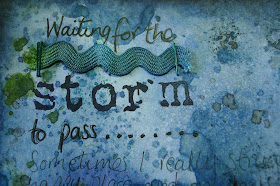 Waiting for the
storm
to pass.......
Sometimes I really